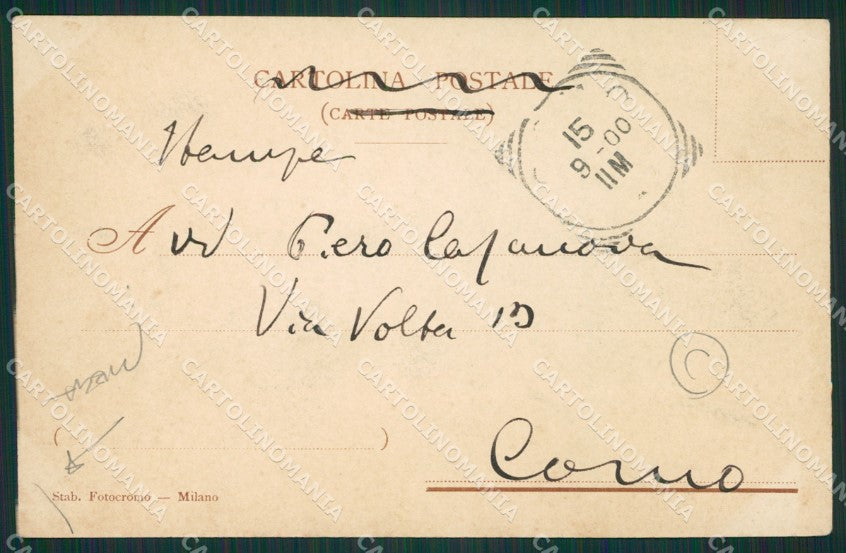 CARTOLINA POSTALE
(CARTE POSTALE)
Stampe
15
9-00
11M
Avv Piero Casanova
Via Volta 13
C
( )
Como
Stab. Fotocromo — Milano
CARTOLINOMANIA